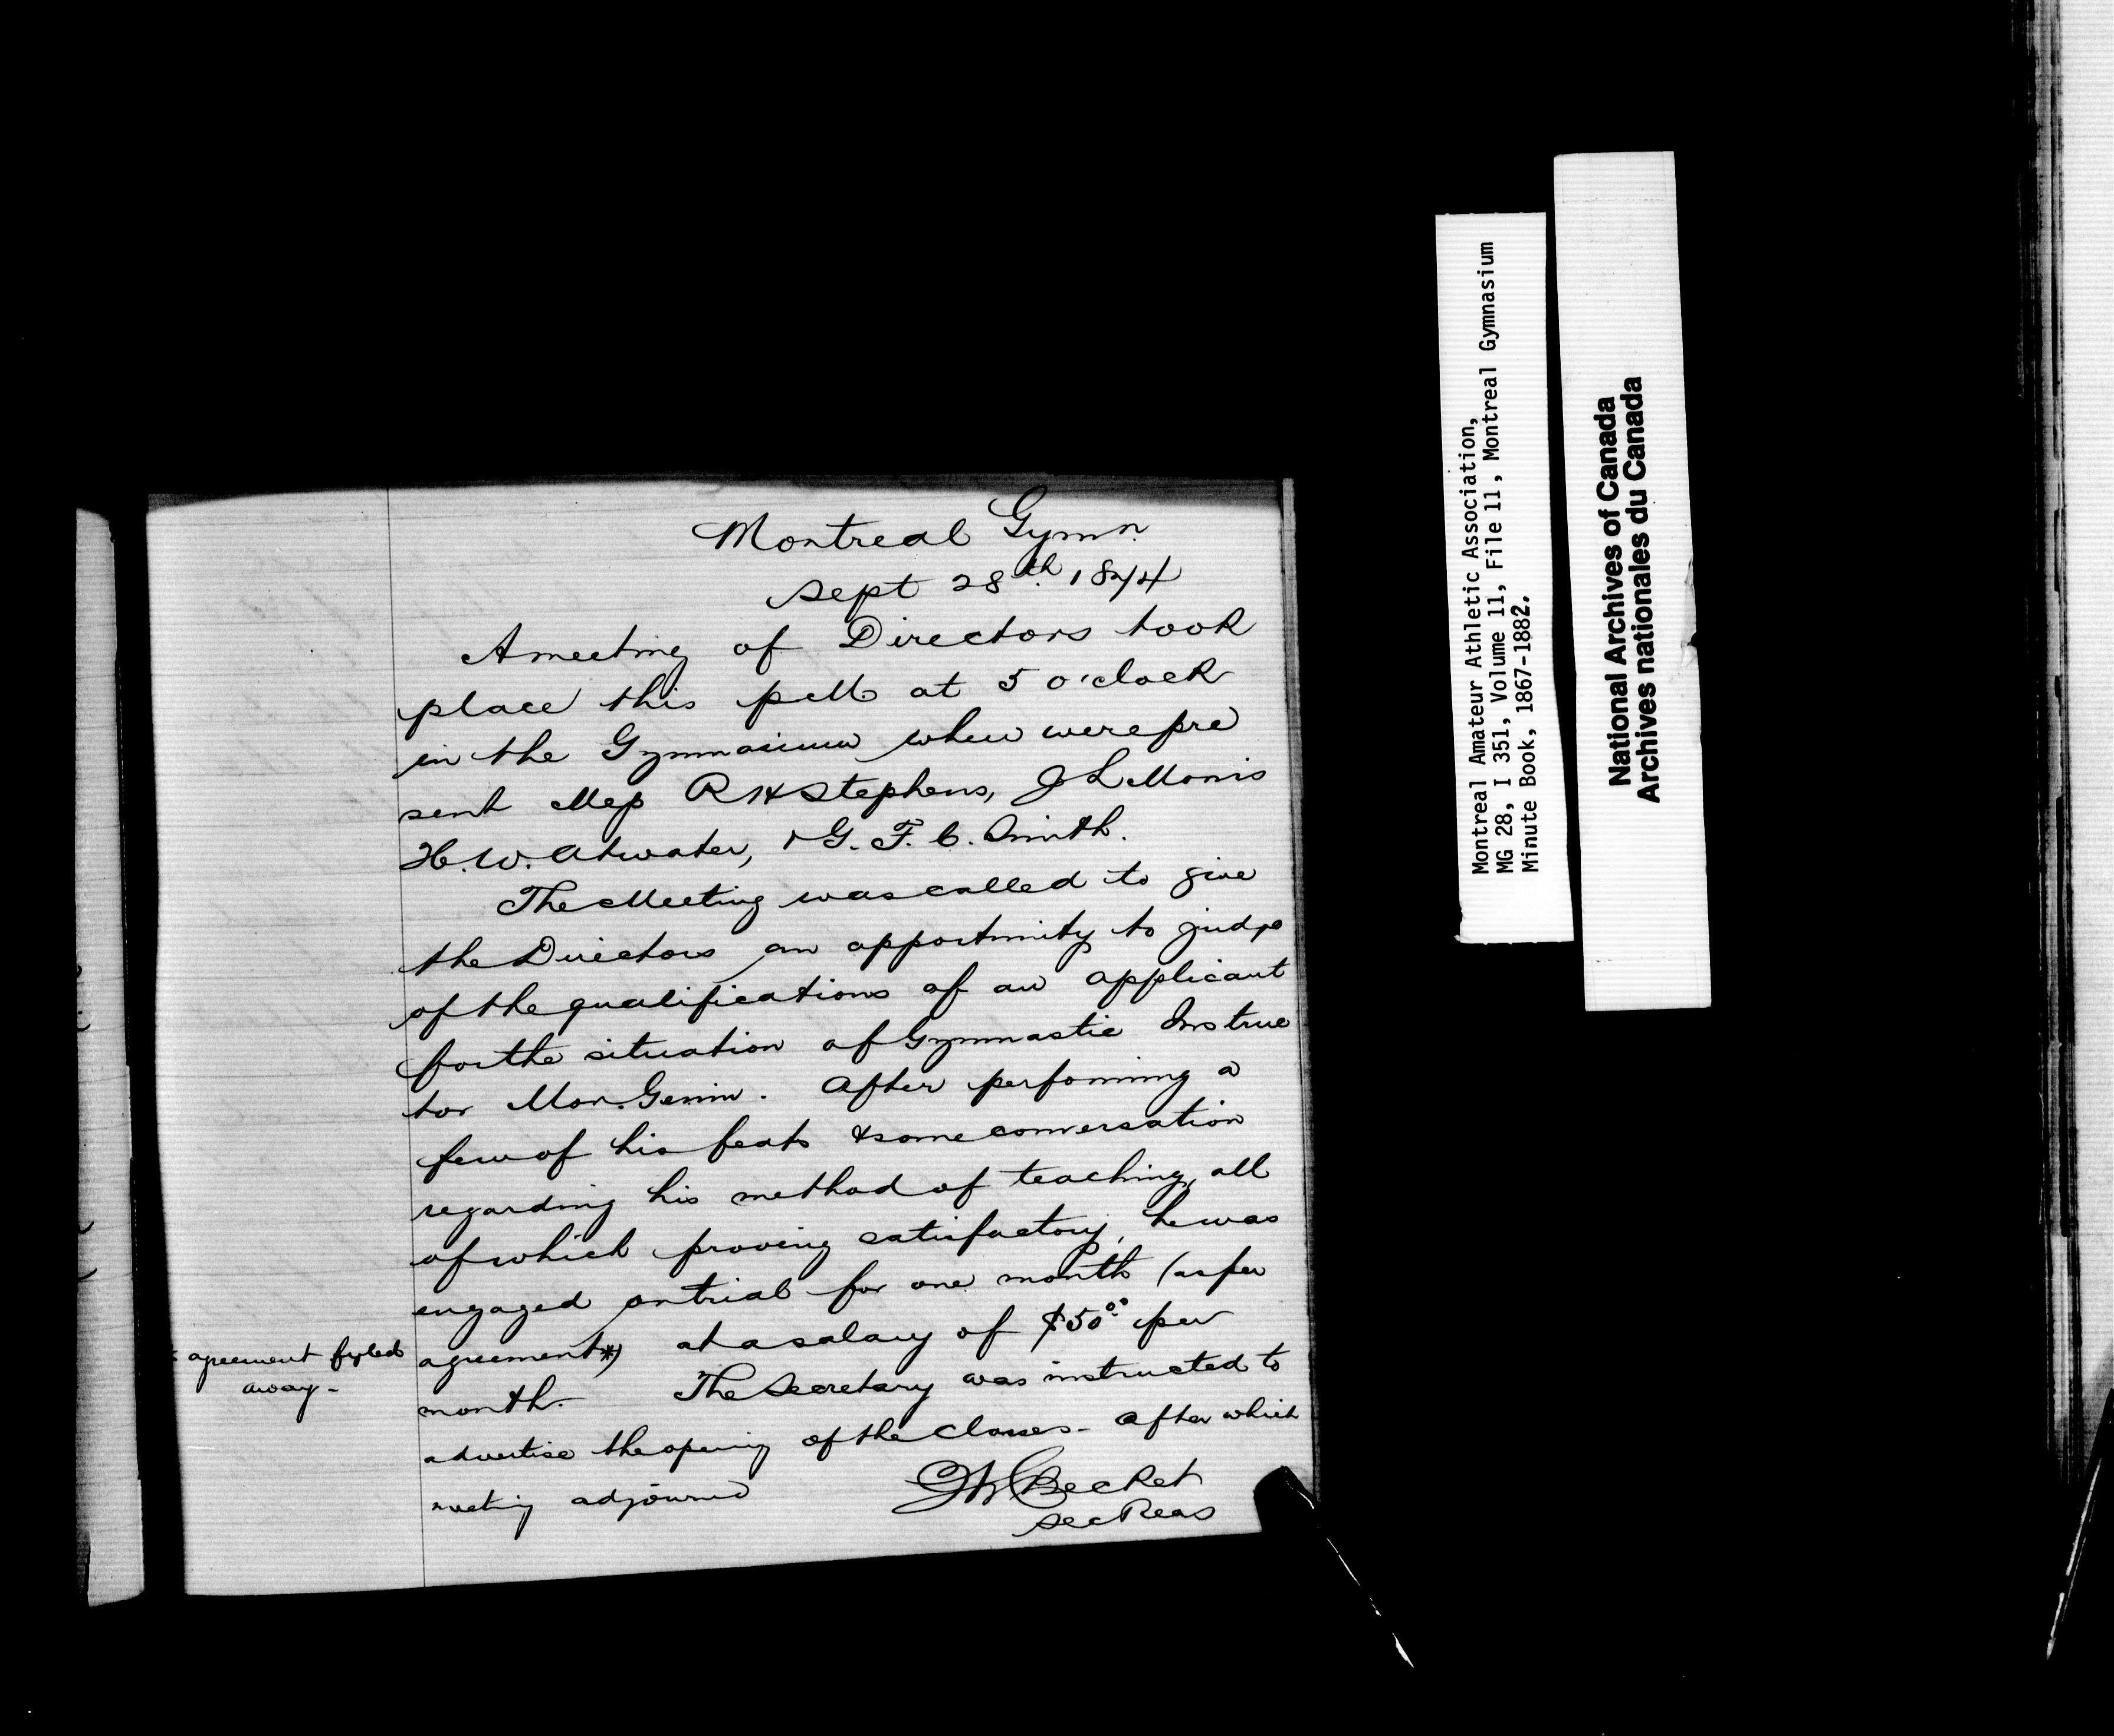 Montreal Gymn.
Sept 28th 1874
A meeting of Directors took
place this p M at 5 o'clock
in the Gymnasium when were pre
sent Mess R H Stephens, J L Morris
H. W. Atwater, & G. F. C. Smith.
The Meeting was called to give
the Directors an opportunity to judge
of the qualifications of an applicant
for the situation of Gymnastic Instruc
tor Mon. Genin. After performing a
few of his feats & some conversation
regarding his method of teaching, all
of which proving satisfactory, he was
engaged on trial for one month (as per
agreement*) at a salary of $50.00 per
month. The Secretary was instructed to
advertise the opening of the Classes - After which
meeting adjourned
Becket
Sec Treas
* agreement fyled
away -
Montreal Amateur Athletic Association,
MG 28, I 351, Volume 11, File 11, Montreal Gymnasium
Minute Book, 1867-1882.
National Archives of Canada
Archives nationales du Canada